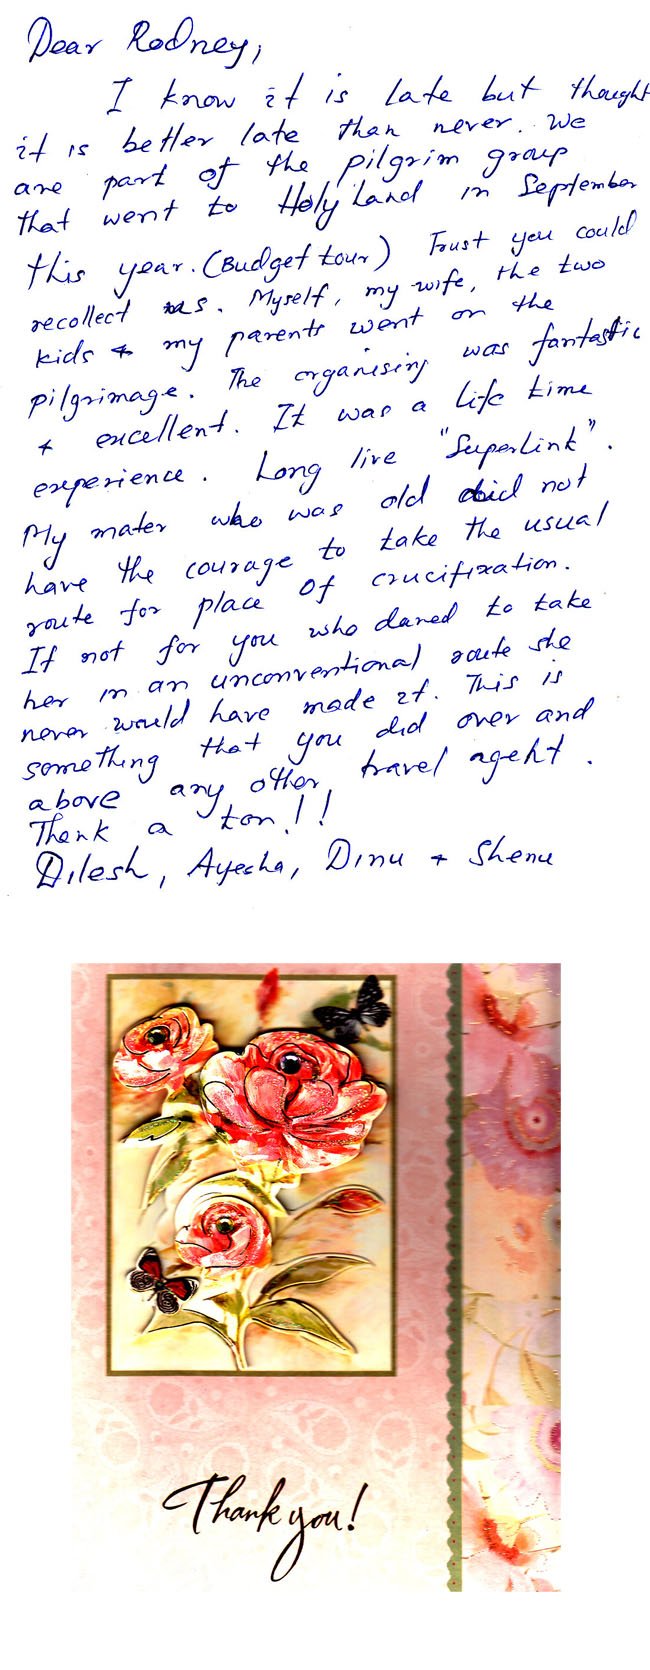 Dear Rodney,
I know it is late but thought
it is better late than never. We
are part of the pilgrim group
that went to Holy Land in September
this year. (Budget tour) Trust you could
recollect us. Myself, my wife, the two
kids & my parents went on the
pilgrimage. The organising was fantastic
& excellent. It was a life time
experience. Long live "Superlink".
My mater who was old did not
have the courage to take the usual
route for place of crucifixation.
If not for you who dared to take
her in an unconventional route she
never would have made it. This is
something that you did over and
above any other travel agent.
Thank a ton!!
Dilesh, Ayesha, Dinu & Shenu
Thank you!